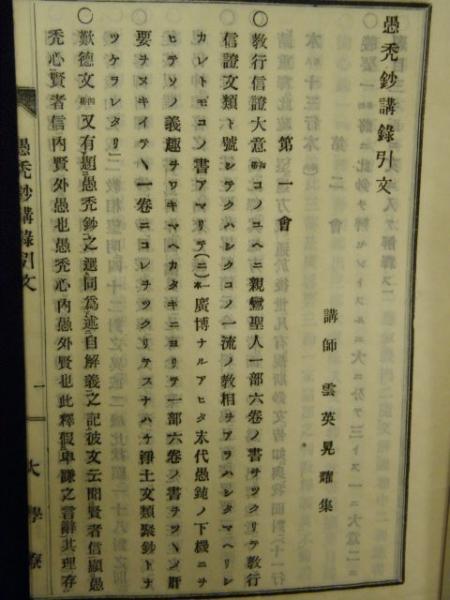 愚禿鈔講錄引文
講師 雲英晃耀集
第一會
〇敎行信證大意 コノユヘニ親鸞聖人一部六卷ノ書ヲツクリテ敎行
信證文類ト號シテクハシクコノ一流ノ敎相ヲアラハシタマヘリシ
カレトモコノ書アマリ(ニ)廣博ナルアヒタ末代愚鈍ノ下機ニヲ
ヒテソノ義趣ヲワキマヘカタキニヨリテ一部六卷ノ書ヲツヽメ肝
要ヲヌキイテヽ一卷ニコレヲツクリテスナハチ淨土文類聚鈔トナ
ツケラレタリ
〇歎德文 又有題愚禿鈔之選同為述自解義之記彼文云聞賢者信顯愚
禿心賢者信內賢外愚也愚禿心內愚外賢也此釋假卑謙之言辭其理存
愚禿鈔講錄引文
一
大學寮